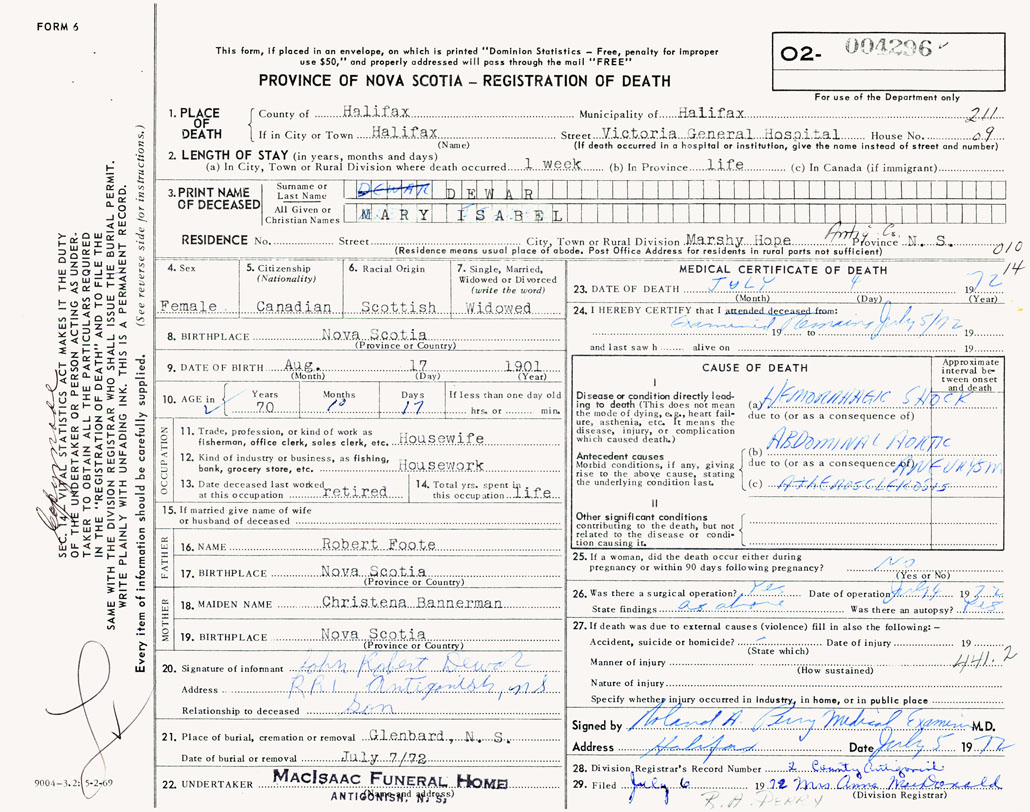 FORM 6
This form, if placed in an envelope, on which is printed "Dominion Statistics – Free, penalty for improper
use $50," and properly addressed will pass through the mail "FREE"
PROVINCE OF NOVA SCOTIA – REGISTRATION OF DEATH
O2- 004296
For use of the Department only
1. PLACE OF DEATH
County of Halifax Municipality of Halifax 211
If in City or Town Halifax Street Victoria General Hospital House No. 09
(Name) (If death occurred in a hospital or institution, give the name instead of street and number)
2. LENGTH OF STAY (in years, months and days)
(a) In City, Town or Rural Division where death occurred 1 week (b) In Province life (c) In Canada (if immigrant)
3. PRINT NAME OF DECEASED
Surname or Last Name DEWAR DEWAR
All Given or Christian Names MARY ISABEL
RESIDENCE No. Street City, Town or Rural Division Marshy Hope Antig. Co. Province N. S. 010
(Residence means usual place of abode. Post Office Address for residents in rural parts not sufficient)
14
4. Sex
Female
5. Citizenship
(Nationality)
Canadian
6. Racial Origin
Scottish
7. Single, Married,
Widowed or Divorced
(write the word)
Widowed
8. BIRTHPLACE Nova Scotia
(Province or Country)
9. DATE OF BIRTH Aug. 17 1901
(Month) (Day) (Year)
10. AGE in
Years Months Days If less than one day old
70 10 17 hrs. or min.
OCCUPATION
11. Trade, profession or kind of work as
fisherman, office clerk, sales clerk, etc. Housewife
12. Kind of industry or business, as fishing,
bank, grocery store, etc. Housework
13. Date deceased last worked
at this occupation retired
14. Total yrs. spent in
this occupation life
15. If married give name of wife
or husband of deceased
FATHER
16. NAME Robert Foote
17. BIRTHPLACE Nova Scotia
(Province or Country)
MOTHER
18. MAIDEN NAME Christena Bannerman
19. BIRTHPLACE Nova Scotia
(Province or Country)
20. Signature of informant John Robert Dewar
Address RR1, Antigonish, NS
Relationship to deceased Son
21. Place of burial, cremation or removal Glenbard, N. S.
Date of burial or removal July 7/72
22. UNDERTAKER MACISAAC FUNERAL HOME
(Name and address)
ANTIGONISH, N. S.
MEDICAL CERTIFICATE OF DEATH
23. DATE OF DEATH JULY 4 1972
(Month) (Day) (Year)
24. I HEREBY CERTIFY that I attended deceased from:
Examined Remains July 5/72
19 to 19
and last saw h alive on 19
CAUSE OF DEATH
Approximate interval between onset and death
I
Disease or condition directly leading to death (This does not mean the mode of dying, e.g., heart failure, asthenia, etc. It means the disease, injury, or complication which caused death.)
(a) HEMORRHAGIC SHOCK
due to (or as a consequence of)
Antecedent causes
Morbid conditions, if any, giving rise to the above cause, stating the underlying condition last.
(b) ABDOMINAL AORTIC ANEURYSM
due to (or as a consequence of)
(c) ATHEROSCLEROSIS
II
Other significant conditions
contributing to the death, but not related to the disease or condition causing it.
25. If a woman, did the death occur either during
pregnancy or within 90 days following pregnancy? No
(Yes or No)
26. Was there a surgical operation? Yes Date of operation July 4 1972
State findings as above Was there an autopsy? Yes
27. If death was due to external causes (violence) fill in also the following: –
Accident, suicide or homicide? - Date of injury 19
(State which)
Manner of injury 441.2
(How sustained)
Nature of injury
Specify whether injury occurred in industry, in home, or in public place
Signed by Roland A. Perry Medical Examiner M.D.
Address Halifax Date July 5 1972
28. Division Registrar's Record Number 2 County Antigonish
29. Filed July 6 1972 Mrs. Anna MacDonald
(Division Registrar)
R. A. PERRY
SEC. 14, VITAL STATISTICS ACT MAKES IT THE DUTY
OF THE UNDERTAKER OR PERSON ACTING AS UNDER-
TAKER TO OBTAIN ALL THE PARTICULARS REQUIRED
IN THE "REGISTRATION OF DEATH" AND TO FILE THE
SAME WITH THE DIVISION REGISTRAR WHO SHALL ISSUE THE BURIAL PERMIT.
WRITE PLAINLY WITH UNFADING INK. THIS IS A PERMANENT RECORD.
Every item of information should be carefully supplied. (See reverse side for instructions.)
9004-3.2: 5-2-69